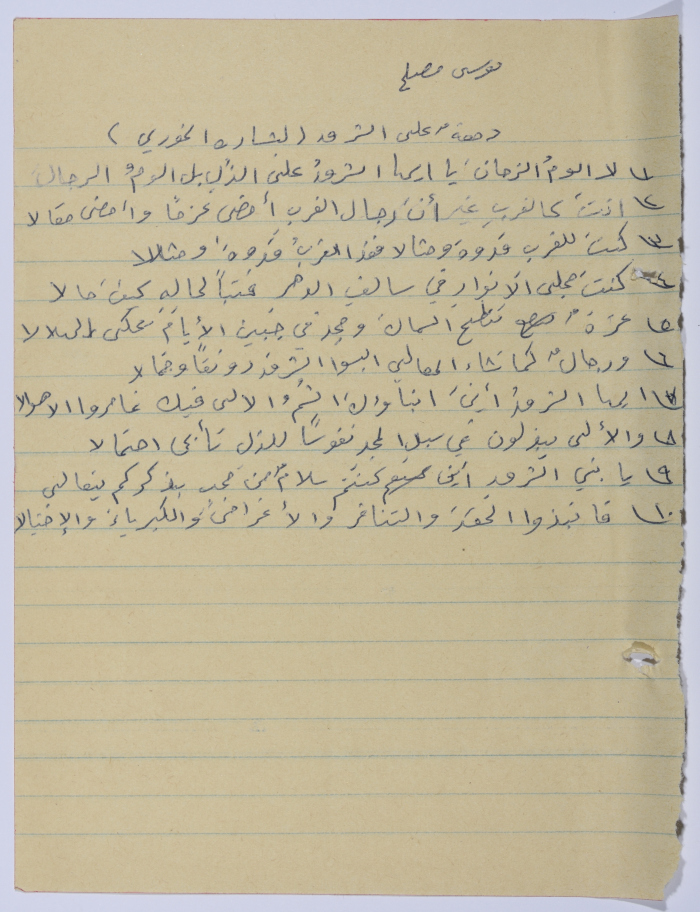 موسى مصلح
دمعة على الشرق (لبشاره الخوري)
١ لا الومُ الزمان يا ايها الشرقُ على الذُلِ بل الومُ الرجال
٢ انت كالغربِ غير أن رجال الغرب أمضى عزمًا وأمضى مقالا
٣ كنت للغرب قدوة ومثالا فغدا الغربُ قدوةً ومثالا
٤ كنت مجلى الأنوار في سالفِ الدهر فتباً لحالهِ كيف حالا
٥ عزةٌ تنطح السماك ومجد في جبين الأيام يحكي الهلالا
٦ ورجالٌ كما تشاء المعالي البسوا الشرق رونقاً وجمالا
٧ ايها الشرقُ أين ابناؤك الشُمُ الالى فيك غامروا الاهوالا
٨ والألى يبذلون في سبل المجد نفوسًا للذل تأبى احتمالا
٩ يا بني الشرق أين كنتم سلامٌ من محب بذكركم يتغالى
١٠ فانبذوا الحقدَ والتنافر والأغراضَ والكبرياءَ والإختيالا